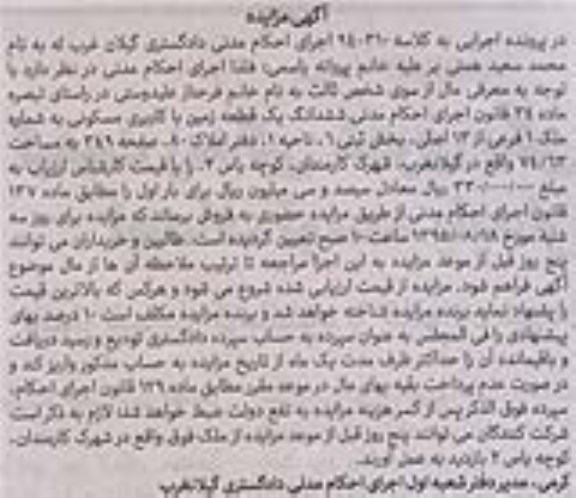 آگهی مزایده
در پرونده اجرایی به کلاسه ۹۴۰۳۱۰ اجرای احکام مدنی دادگستری گیلان غرب له به نام
محمد سعید همتی بر علیه خانم پروانه یاسمی، فلذا اجرای احکام مدنی در نظر دارد با
توجه به معرفی مال از سوی شخص ثالث به نام خانم فرحناز علیدوستی در راستای تبصره
ماده ۳۴ قانون اجرای احکام مدنی ششدانگ یک قطعه زمین با کاربری مسکونی به شماره
ملک ۱ فرعی از ۱۳ اصلی، بخش ثبتی ۱، ناحیه ۱، دفتر املاک ۹۰، صفحه ۲۴۹ به مساحت
۷۴/۶۳ واقع در گیلانغرب، شهرک کارمندان، کوچه یاس ۲، را با قیمت کارشناس ارزیاب به
مبلغ ۳۳۰/۰۰۰/۰۰۰ ریال معادل سیصد و سی میلیون ریال برای بار اول را مطابق ماده ۱۳۷
قانون اجرای احکام مدنی از طریق مزایده حضوری به فروش برساند که مزایده برای روز سه
شنبه مورخ ۱۳۹۵/۰۸/۱۸ ساعت ۱۰ صبح تعیین گردیده است. طالبین و خریداران می توانند
پنج روز قبل از موعد مزایده به این اجرا مراجعه تا ترتیب ملاحظه آن ها از مال موضوع
آگهی فراهم شود. مزایده از قیمت ارزیابی شده شروع می شود و هرکس که بالاترین قیمت
را پیشنهاد نماید برنده مزایده شناخته خواهد شد و برنده مزایده مکلف است ۱۰ درصد بهای
پیشنهادی را فی المجلس به عنوان سپرده به حساب سپرده دادگستری تودیع و رسید دریافت
و باقیمانده آن را حداکثر ظرف مدت یک ماه از تاریخ مزایده به حساب مذکور واریز کند و
در صورت عدم پرداخت بقیه بهای مال در موعد مقرر مطابق ماده ۱۲۹ قانون اجرای احکام،
سپرده فوق الذکر پس از کسر هزینه مزایده به نفع دولت ضبط خواهد شد؛ لازم به ذکر است
شرکت کنندگان می توانند پنج روز قبل از موعد مزایده از ملک فوق واقع در شهرک کارمندان،
کوچه یاس ۲ بازدید به عمل آورند.
کرمی، مدیر دفتر شعبه اول اجرای احکام مدنی دادگستری گیلانغرب